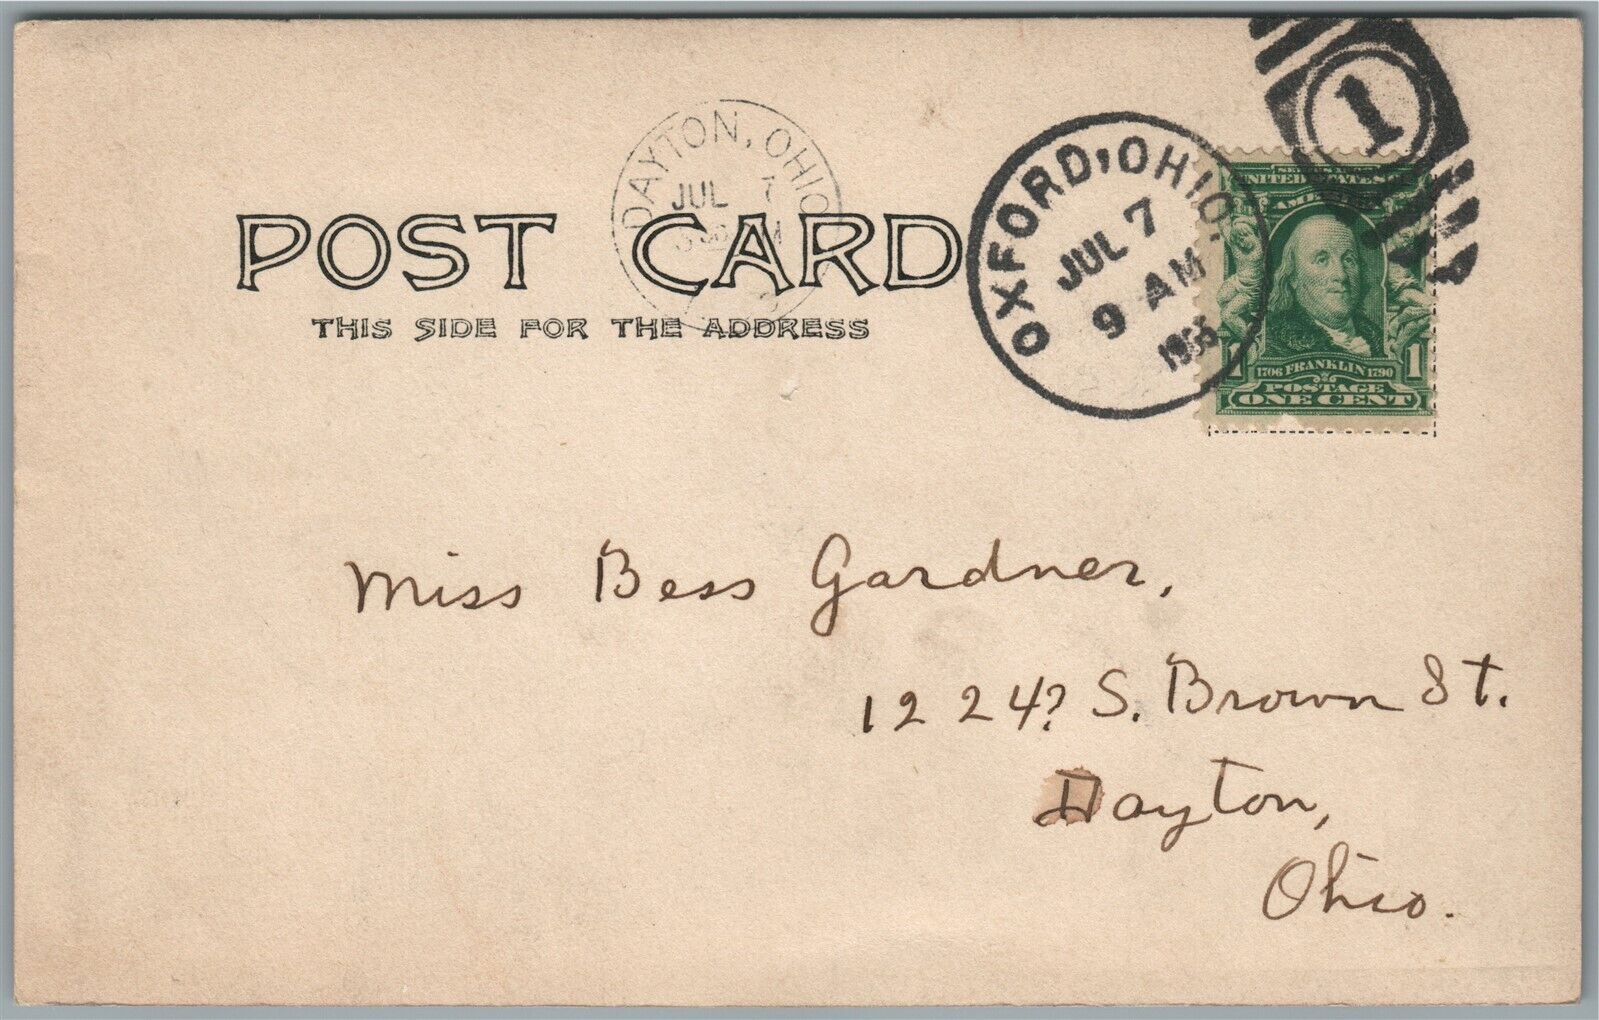 DAYTON, OHIO
JUL 7
POST CARD
THIS SIDE FOR THE ADDRESS
OXFORD, OHIO.
JUL 7
9 AM
1
UNITED STATES
1706 FRANKLIN 1790
1 1
POSTAGE
ONE CENT
Miss Bess Gardner,
1224? S. Brown St.
Dayton,
Ohio.